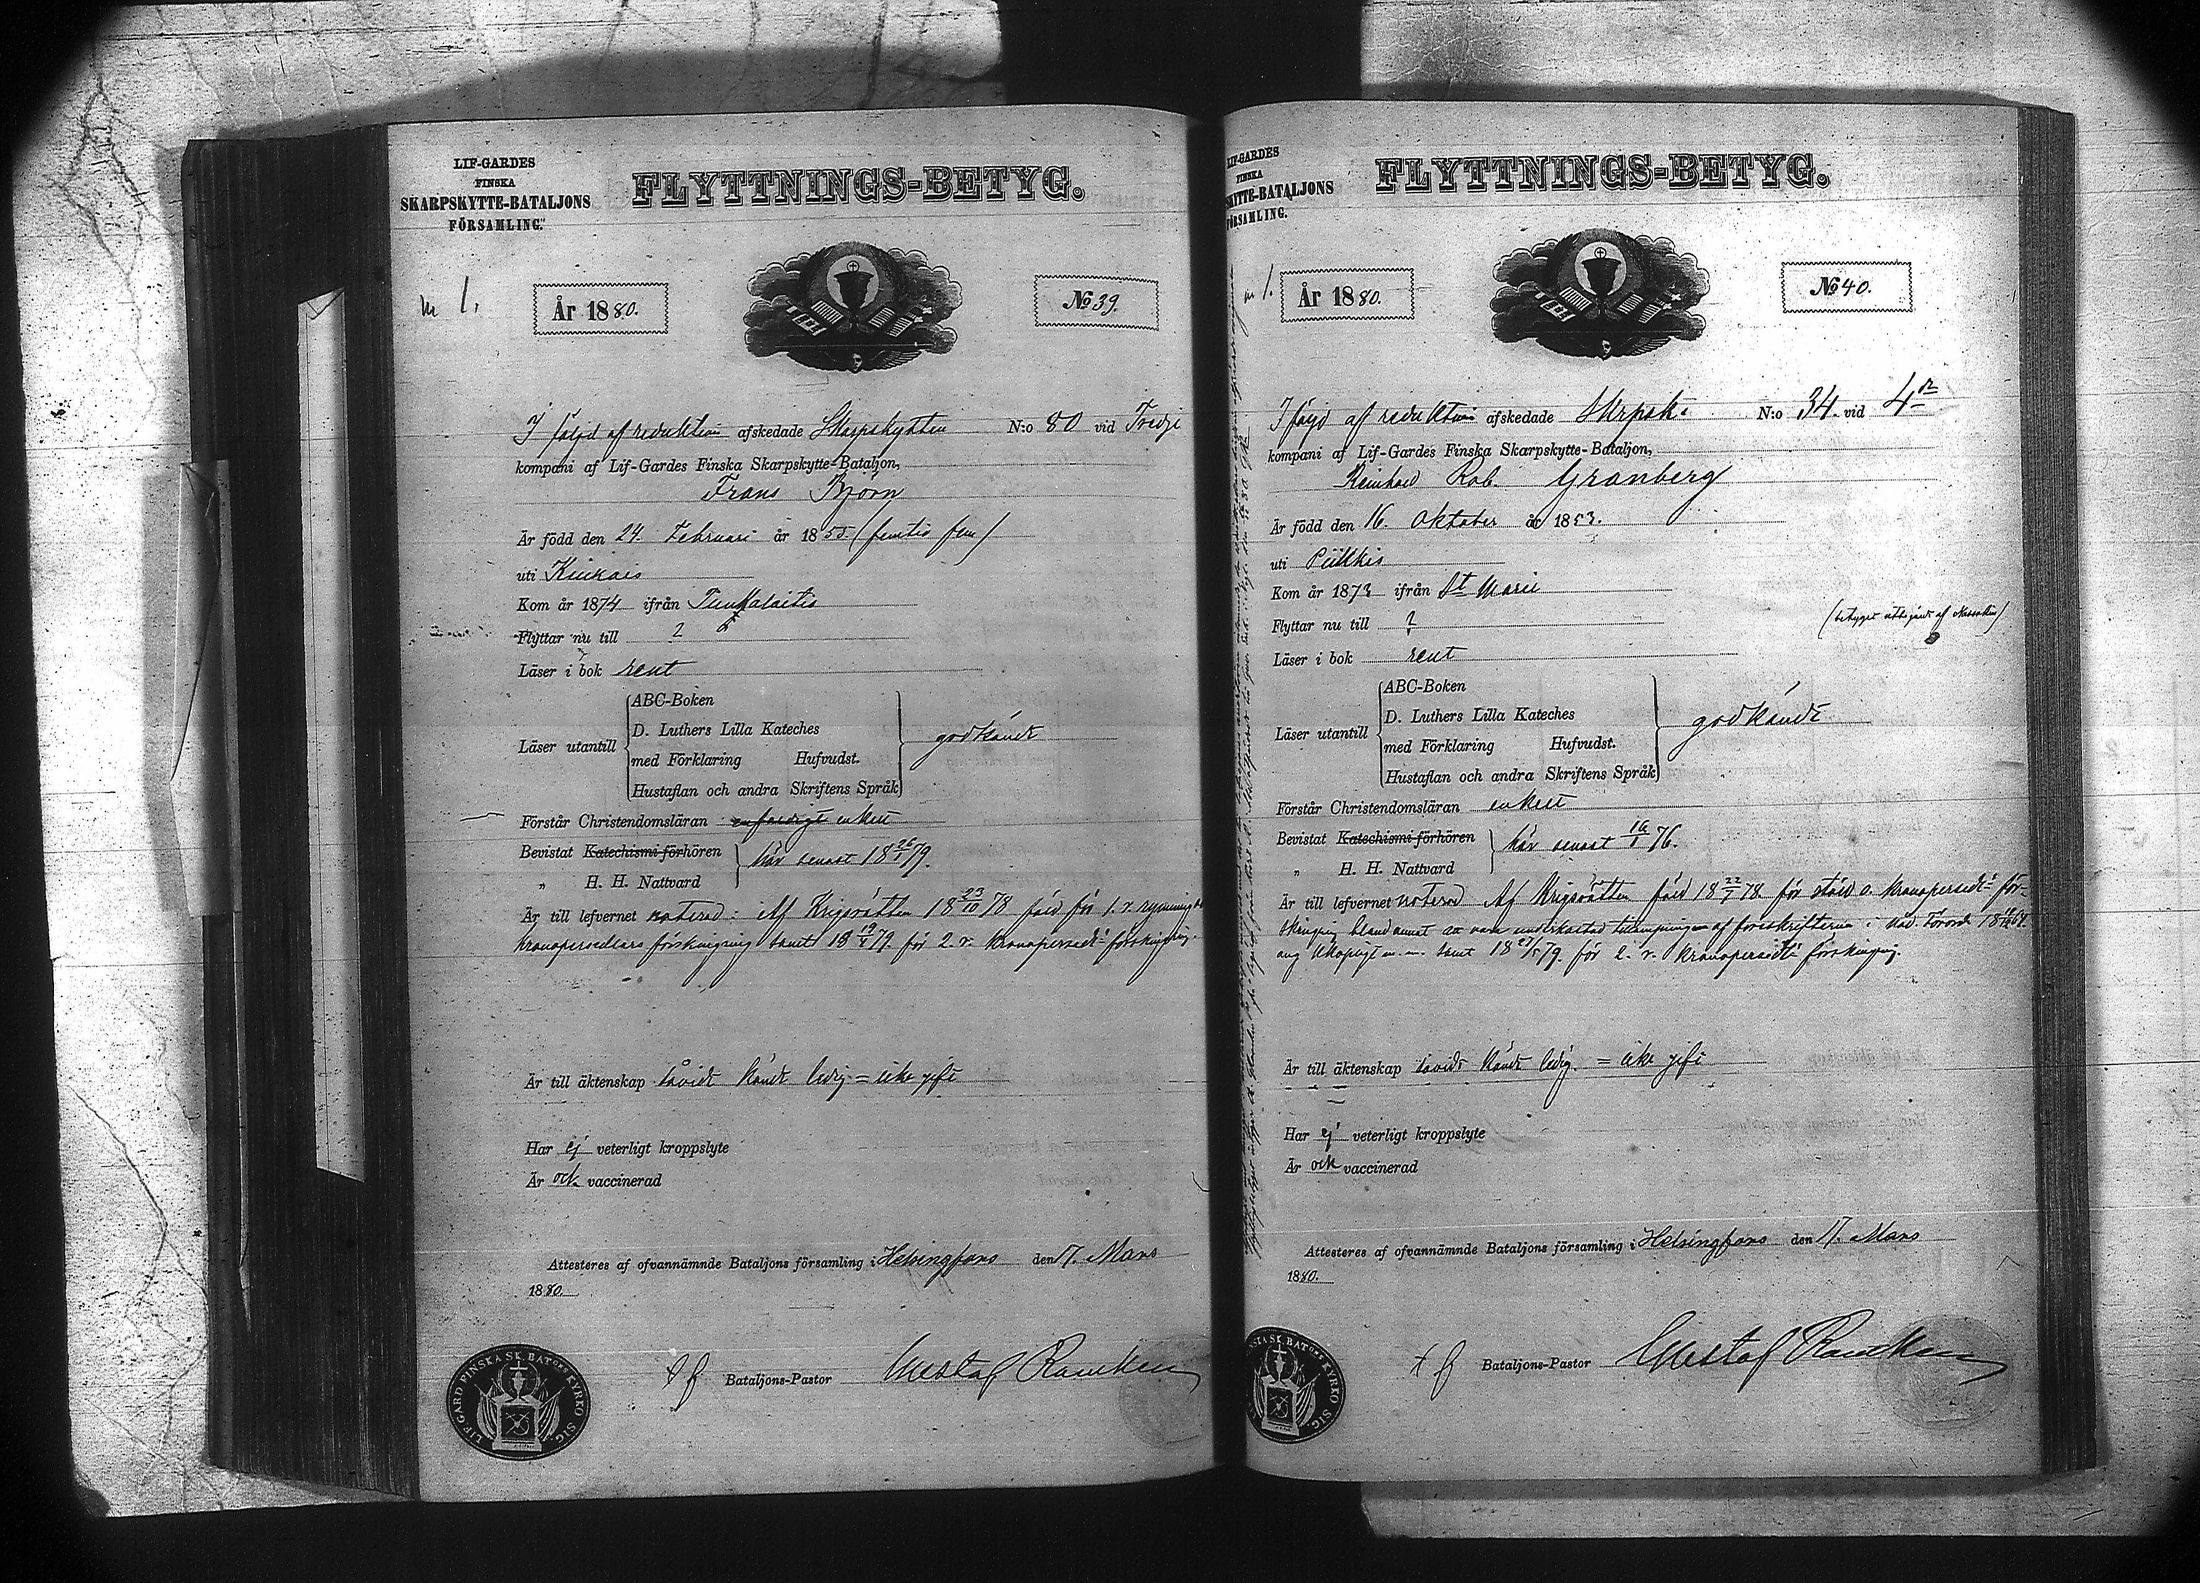 LIF-GARDES
FINSKA
SKARPSKYTTE-BATALJONS
FÖRSAMLING.
FLYTTNINGS-BETYG.
m 1.
År 1880.
No 39.
I följd af reduktion afskedade Skarpskytten N:o 80 vid Tredje
kompani af Lif-Gardes Finska Skarpskytte-Bataljon,
Frans Björn
Är född den 24 Februari år 1855 (femtio fem)
uti Kiukais
Kom år 1874 ifrån
Flyttar nu till ?
Läser i bok rent
Läser utantill
ABC-Boken
D. Luthers Lilla Kateches
med Förklaring Hufvudst.
Hustaflan och andra Skriftens Språk
godkändt
Förstår Christendomsläran enfaldigt enkelt
Bevistat Katechismi-förhören
„ H. H. Nattvard
här senast 18 26/1 79.
Är till lefvernet noterad: Af Krigsrätten 18 23/10 78 fäld för 1. r. rymning
kronopersedlars förskingring samt 18 79 för 2 r. kronopersedl. förskingring.
Är till äktenskap såvidt kändt ledig = icke gift
Har ej veterligt kroppslyte
Är ock vaccinerad
Attesteres af ofvannämnde Bataljons församling i Helsingfors den 17. Mars
1880.
LIF. GARD. FINSKA SK. BATONS KYRKO SIG.
t f Bataljons-Pastor Gustaf Rancken
LIF-GARDES
FINSKA
SKYTTE-BATALJONS
FÖRSAMLING.
FLYTTNINGS-BETYG.
m 1.
År 1880.
No 40.
I följd af reduktion afskedade Skrpsk. N:o 34 vid 4de
kompani af Lif-Gardes Finska Skarpskytte-Bataljon,
Reinhold Rob. Granberg
Är född den 16. Oktober år 1853.
uti Piikkis
Kom år 1873 ifrån St Marie
Flyttar nu till ?
(betyget af )
Läser i bok rent
Läser utantill
ABC-Boken
D. Luthers Lilla Kateches
med Förklaring Hufvudst.
Hustaflan och andra Skriftens Språk
godkändt
Förstår Christendomsläran enkelt
Bevistat Katechismi-förhören
„ H. H. Nattvard
här senast 16/1 76.
Är till lefvernet noterad Af Krigsrätten fäld 18 22/7 78 för stöld o. kronopersedl. för-
skingring bland annat af föreskrifterna i
ang m. m. samt 18 27/5 79. för 2. r. kronopersedl. förskingring.
Är till äktenskap såvidt kändt ledig. = icke gift
Har ej veterligt kroppslyte
Är ock vaccinerad
Attesteres af ofvannämnde Bataljons församling i Helsingfors den 17. Mars
1880.
FINSKA SK. BATONS KYRKO SIG.
t f Bataljons-Pastor Gustaf Rancken